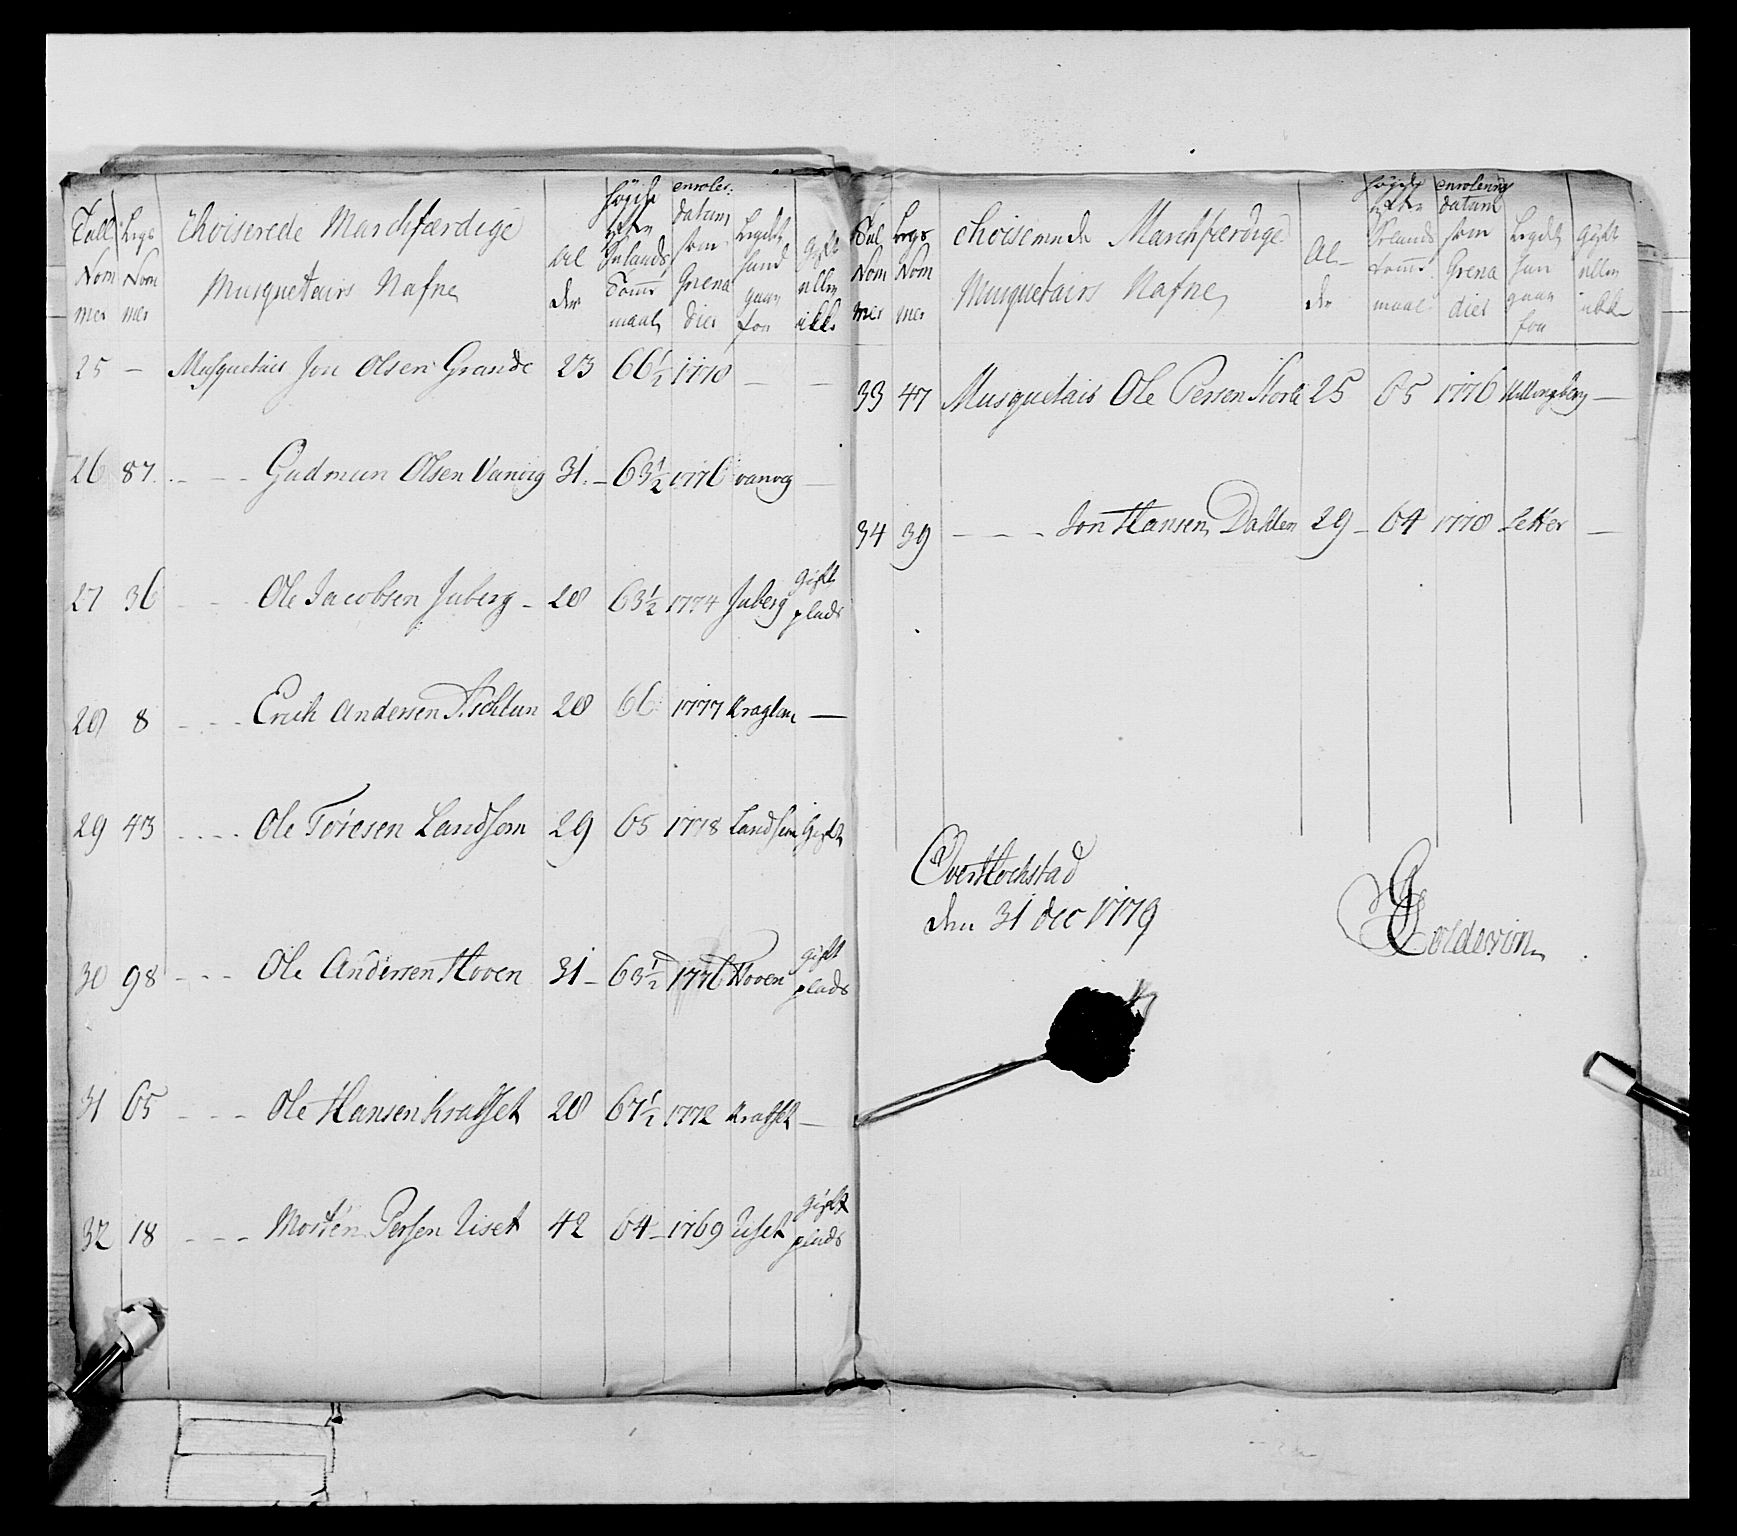 Tall Nommer | Legs Nommer | Choiserede Marchfærdige Musquetairs Nafne | Alder | Høyde efter Inlands Tomme maal | enroler: datum som Grenadier | Legdet hand gaar for | Gift eller ikke
25 — Musquetair Jon Olsen Grande 23 66½ 1778 — —
26 87 — — Gudmun Olsen Vanvig 31 — 63½ 1776 vanvig —
27 36 — — Ole Jacobsen Juberg — 28 63½ 1774 Juberg gift plads
28 8 — — Erich Andersen 28 66 1777 —
29 43 — — Ole Toresen Landsem 29 65 1778 Landsem Gift
30 98 — — Ole Andersen Hoven 31 — 63½ 1776 Hoven gift plads
31 65 — — Ole Hansen Kraasset 28 67½ 1772 —
32 18 — — Morten Persen Liset 42 64 — 1769 Liset gift plads
Tal Nommer | Legs Nommer | choiserende Marchfærdige Musquetairs Nafne | Alder | Høyde efter Inlands tomme maal | enrolering datum som Grenadier | Legdet han gaar for | gift eller ikke
33 47 Musquetair Ole Persen Storli 25 65 1776 —
34 39 — — Jon Hansen Dahlen 29 — 64 1778 —
Over Hochstad
den 31 dec 1779
Coldevin